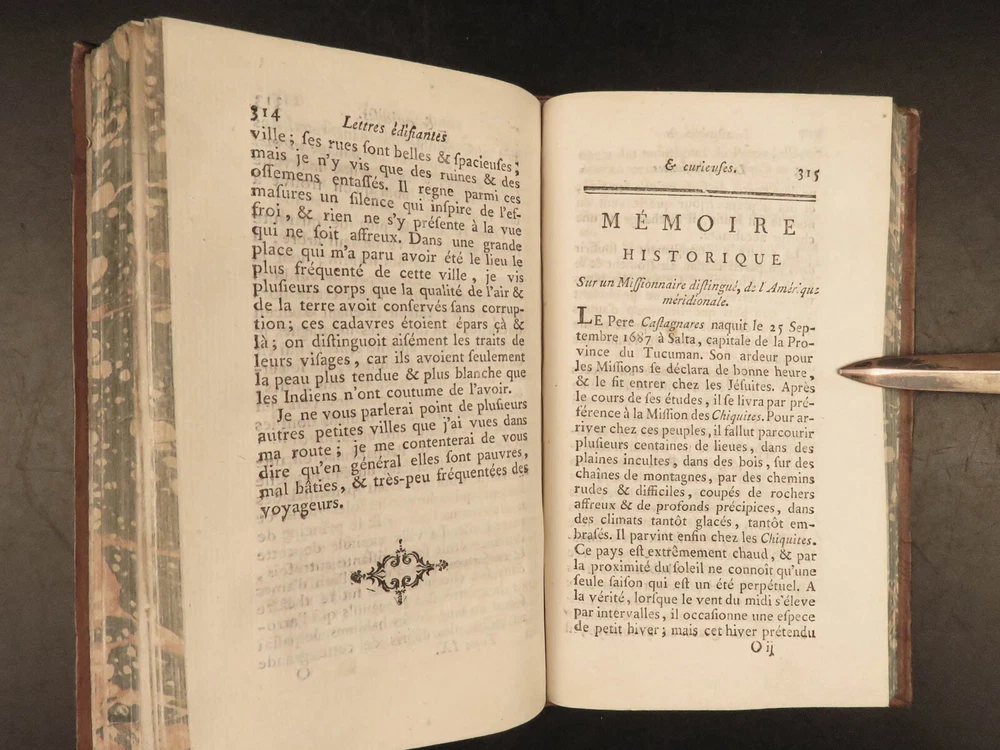 314 Lettres édifiantes
ville ; ſes rues ſont belles & ſpacieuſes ;
mais je n'y vis que des ruines & des
oſſemens entaſſés. Il regne parmi ces
maſures un ſilence qui inſpire de l'ef-
froi, & rien ne s'y préſente à la vue
qui ne ſoit affreux. Dans une grande
place qui m'a paru avoir été le lieu le
plus fréquenté de cette ville, je vis
pluſieurs corps que la qualité de l'air &
de la terre avoit conſervés ſans corrup-
tion ; ces cadavres étoient épars çà &
là ; on diſtinguoit aiſément les traits de
leurs viſages, car ils avoient ſeulement
la peau plus tendue & plus blanche que
les Indiens n'ont coutume de l'avoir.
Je ne vous parlerai point de pluſieurs
autres petites villes que j'ai vues dans
ma route ; je me contenterai de vous
dire qu'en général elles ſont pauvres,
mal bâties, & très-peu fréquentées des
voyageurs.
& curieuſes. 315
MÉMOIRE
HISTORIQUE
Sur un Miſſionnaire diſtingué, de l'Amérique
méridionale.
LE Pere Caſtagnares naquit le 25 Sep-
tembre 1687 à Salta, capitale de la Pro-
vince du Tucuman. Son ardeur pour
les Miſſions ſe déclara de bonne heure,
& le fit entrer chez les Jéſuites. Après
le cours de ſes études, il ſe livra par pré-
férence à la Miſſion des Chiquites. Pour ar-
river chez ces peuples, il fallut parcourir
pluſieurs centaines de lieues, dans des
plaines incultes, dans des bois, ſur des
chaînes de montagnes, par des chemins
rudes & difficiles, coupés de rochers
affreux & de profonds précipices, dans
des climats tantôt glacés, tantôt em-
braſés. Il parvint enfin chez les Chiquites.
Ce pays eſt extrêmement chaud, & par
la proximité du ſoleil ne connoît qu'une
ſeule ſaiſon qui eſt un été perpétuel. A
la vérité, lorſque le vent du midi s'éleve
par intervalles, il occaſionne une eſpece
de petit hiver ; mais cet hiver prétendu
O ij